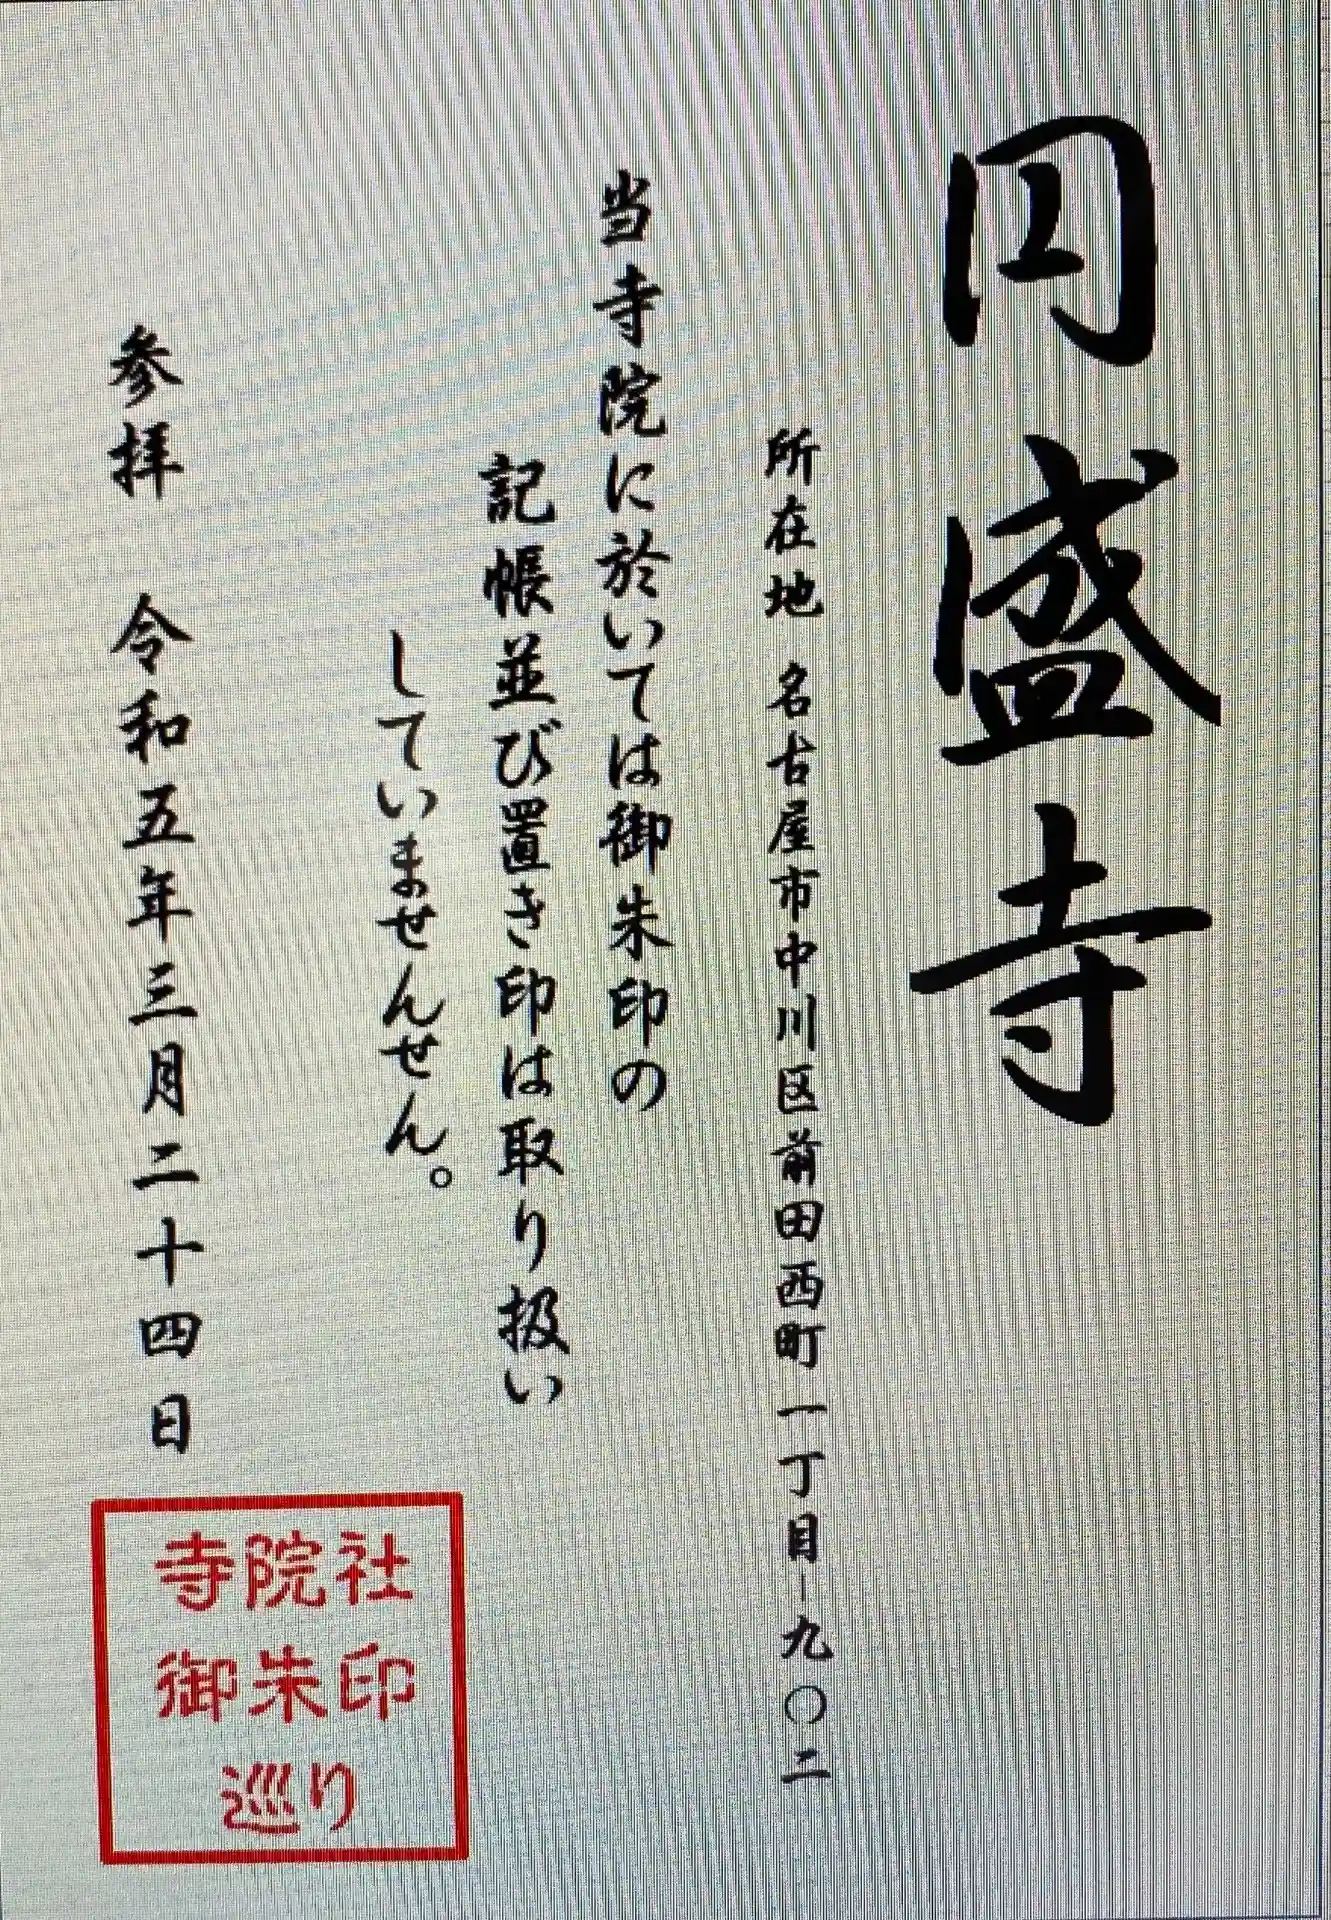 円盛寺
所在地 名古屋市中川区前田西町一丁目-九〇二
当寺院に於いては御朱印の
記帳並び置き印は取り扱い
していませんせん。
参拝 令和五年三月二十四日
寺院社
御朱印
巡り